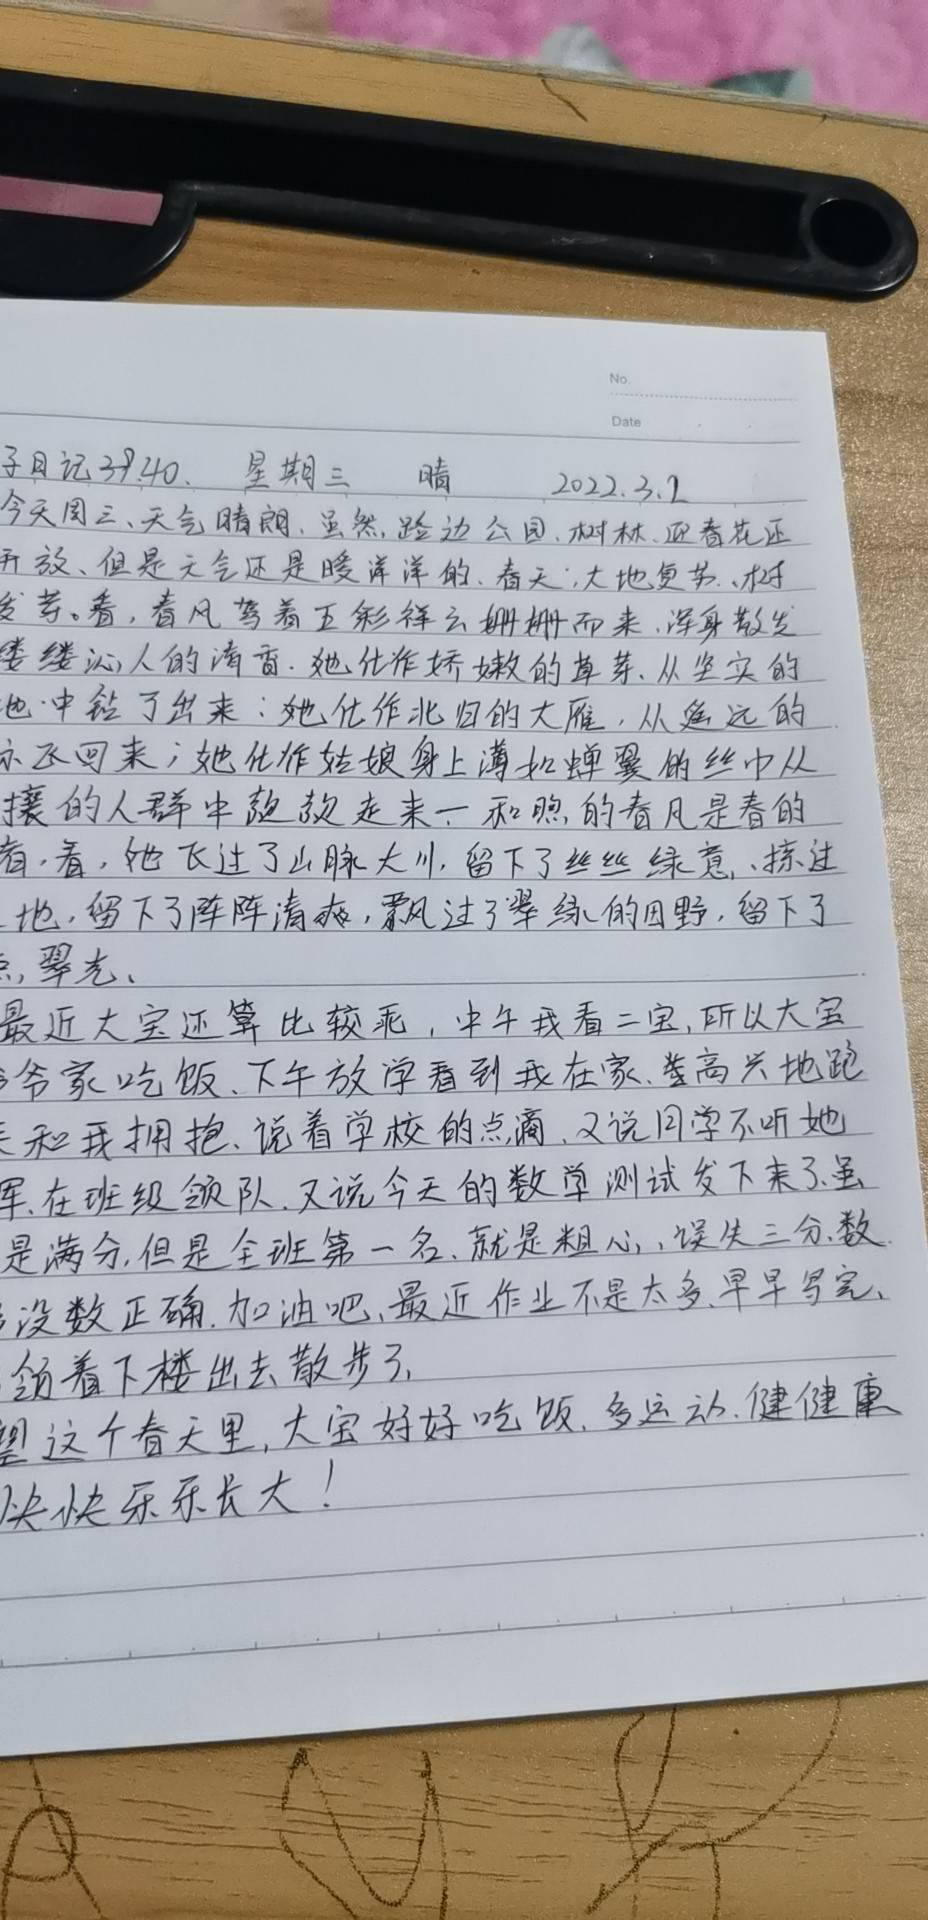 No.
Date
子日记39.40. 星期三 晴 2022.3.2
今天周三、天气晴朗.虽然,路边公园.树林.迎春花还
开放、但是天气还是暖洋洋的.春天,大地复苏.、树
发芽。看,春风驾着五彩祥云姗姗而来.浑身散发
缕缕沁人的清香.她化作娇嫩的草芽.从坚实的
地中钻了出来;她化作北归的大雁,从遥远的
飞回来;她化作姑娘身上薄如蝉翼的丝巾从
攘的人群中款款走来一和煦的春风是春的
看,看,她飞过了山脉大川,留下了丝丝绿意、掠过
地,留下了阵阵清爽,飘过了翠绿的田野,留下了
点,翠光、
最近大宝还算比较乖,中午我看二宝,所以大宝
爷家吃饭、下午放学看到我在家、高兴地跑
和我拥抱、说着学校的点滴、又说同学不听她
挥.在班级领队.又说今天的数学测试发下来了.虽
是满分,但是全班第一名、就是粗心,误失三分、数
没数正确.加油吧、最近作业不是太多、早早写完、
领着下楼出去散步了,
望这个春天里,大宝好好吃饭.多运动.健健康
快快乐乐长大!